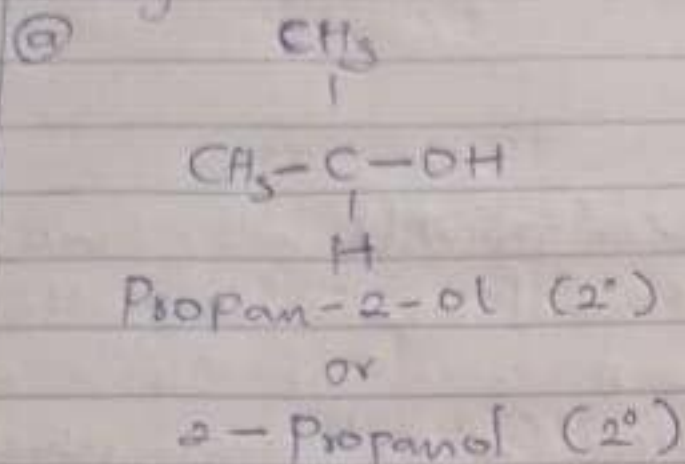 ⓐ CH3
|
CH3-C-OH
|
H
Propan-2-ol (2°)
or
2-Propanol (2°)